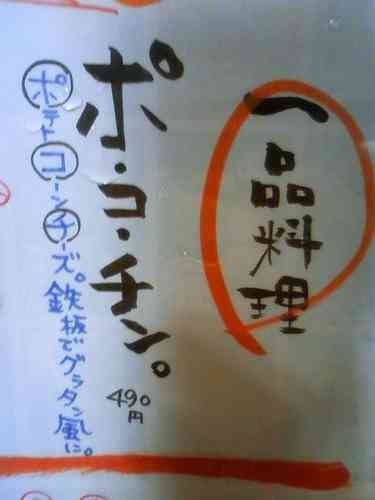 一品料理
ポ・コ・チン。
490円
ポテトコーンチーズ。鉄板でグラタン風に。